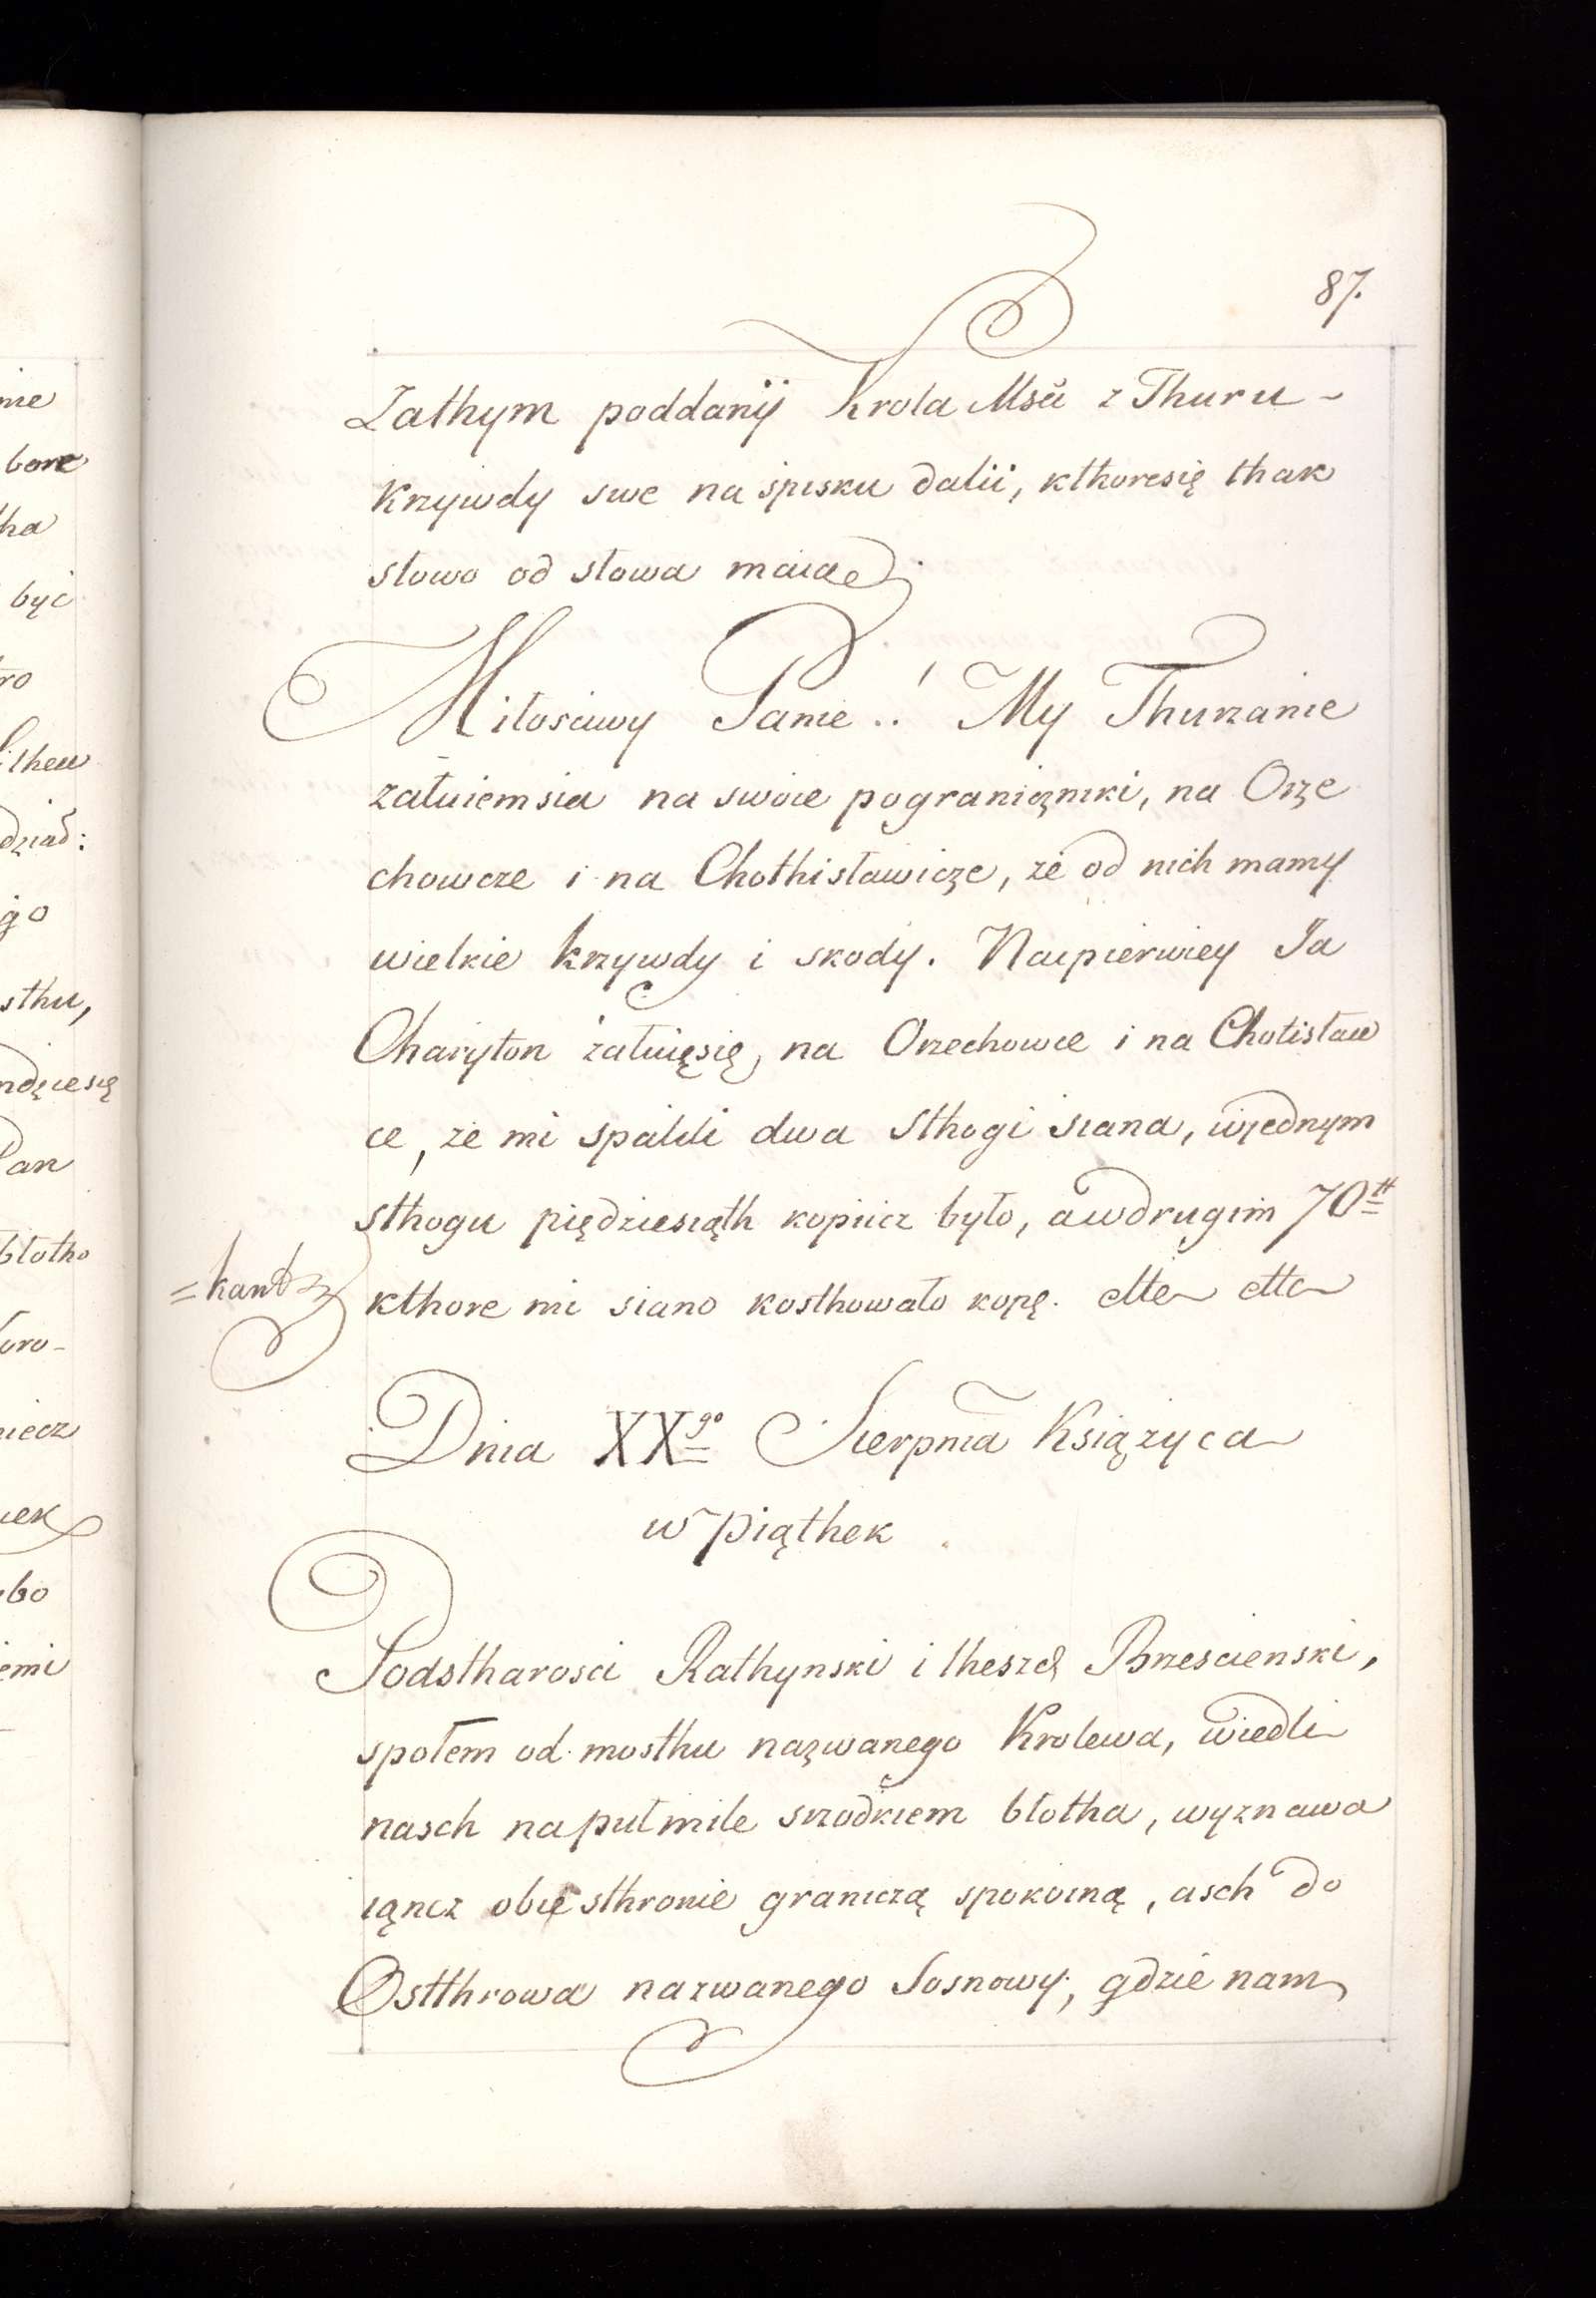 87.
Zathym poddanÿ Krola Msci z Thuru -
Krzywdy swe na spisku dalii, kthoresię thak
słowo od słowa maia.
Miłosciwy Panie..! My Thurzanie
załuiemsia na swoie pogranicznıki, na Orze
chowcze i na Chothisławicze, że od nich mamy
wielkie krzywdy i skody. Naipierwiey Ja
Charyton żałuięsię, na Orzechowce i na Chotisław
ce, że mi spalili dwa sthogi siana, wjednym
sthogu piędziesiąth kopiicz było, awdrugim 70tt
=hand
kthore mi siano kosthowało kopę. etta etta
Dnia XXgo Sierpnia Księżyca
w piąthek
Podstharosci Rathynski i theszcz Brzescienski,
społem od mosthu nazwanego Krolewa, wiedli
nasch napuł mile srzodkiem błotha, wyznawa
iąncz obie sthronie graniczą spokoiną, asch do
Ostthrowa nazwanego Sosnowy, gdzie nam
me
bore
tha
być
ro
theu
dział:
go
sthu,
ndziesię
Pan
błotho
oro-
niecz
iek
bo
iemi